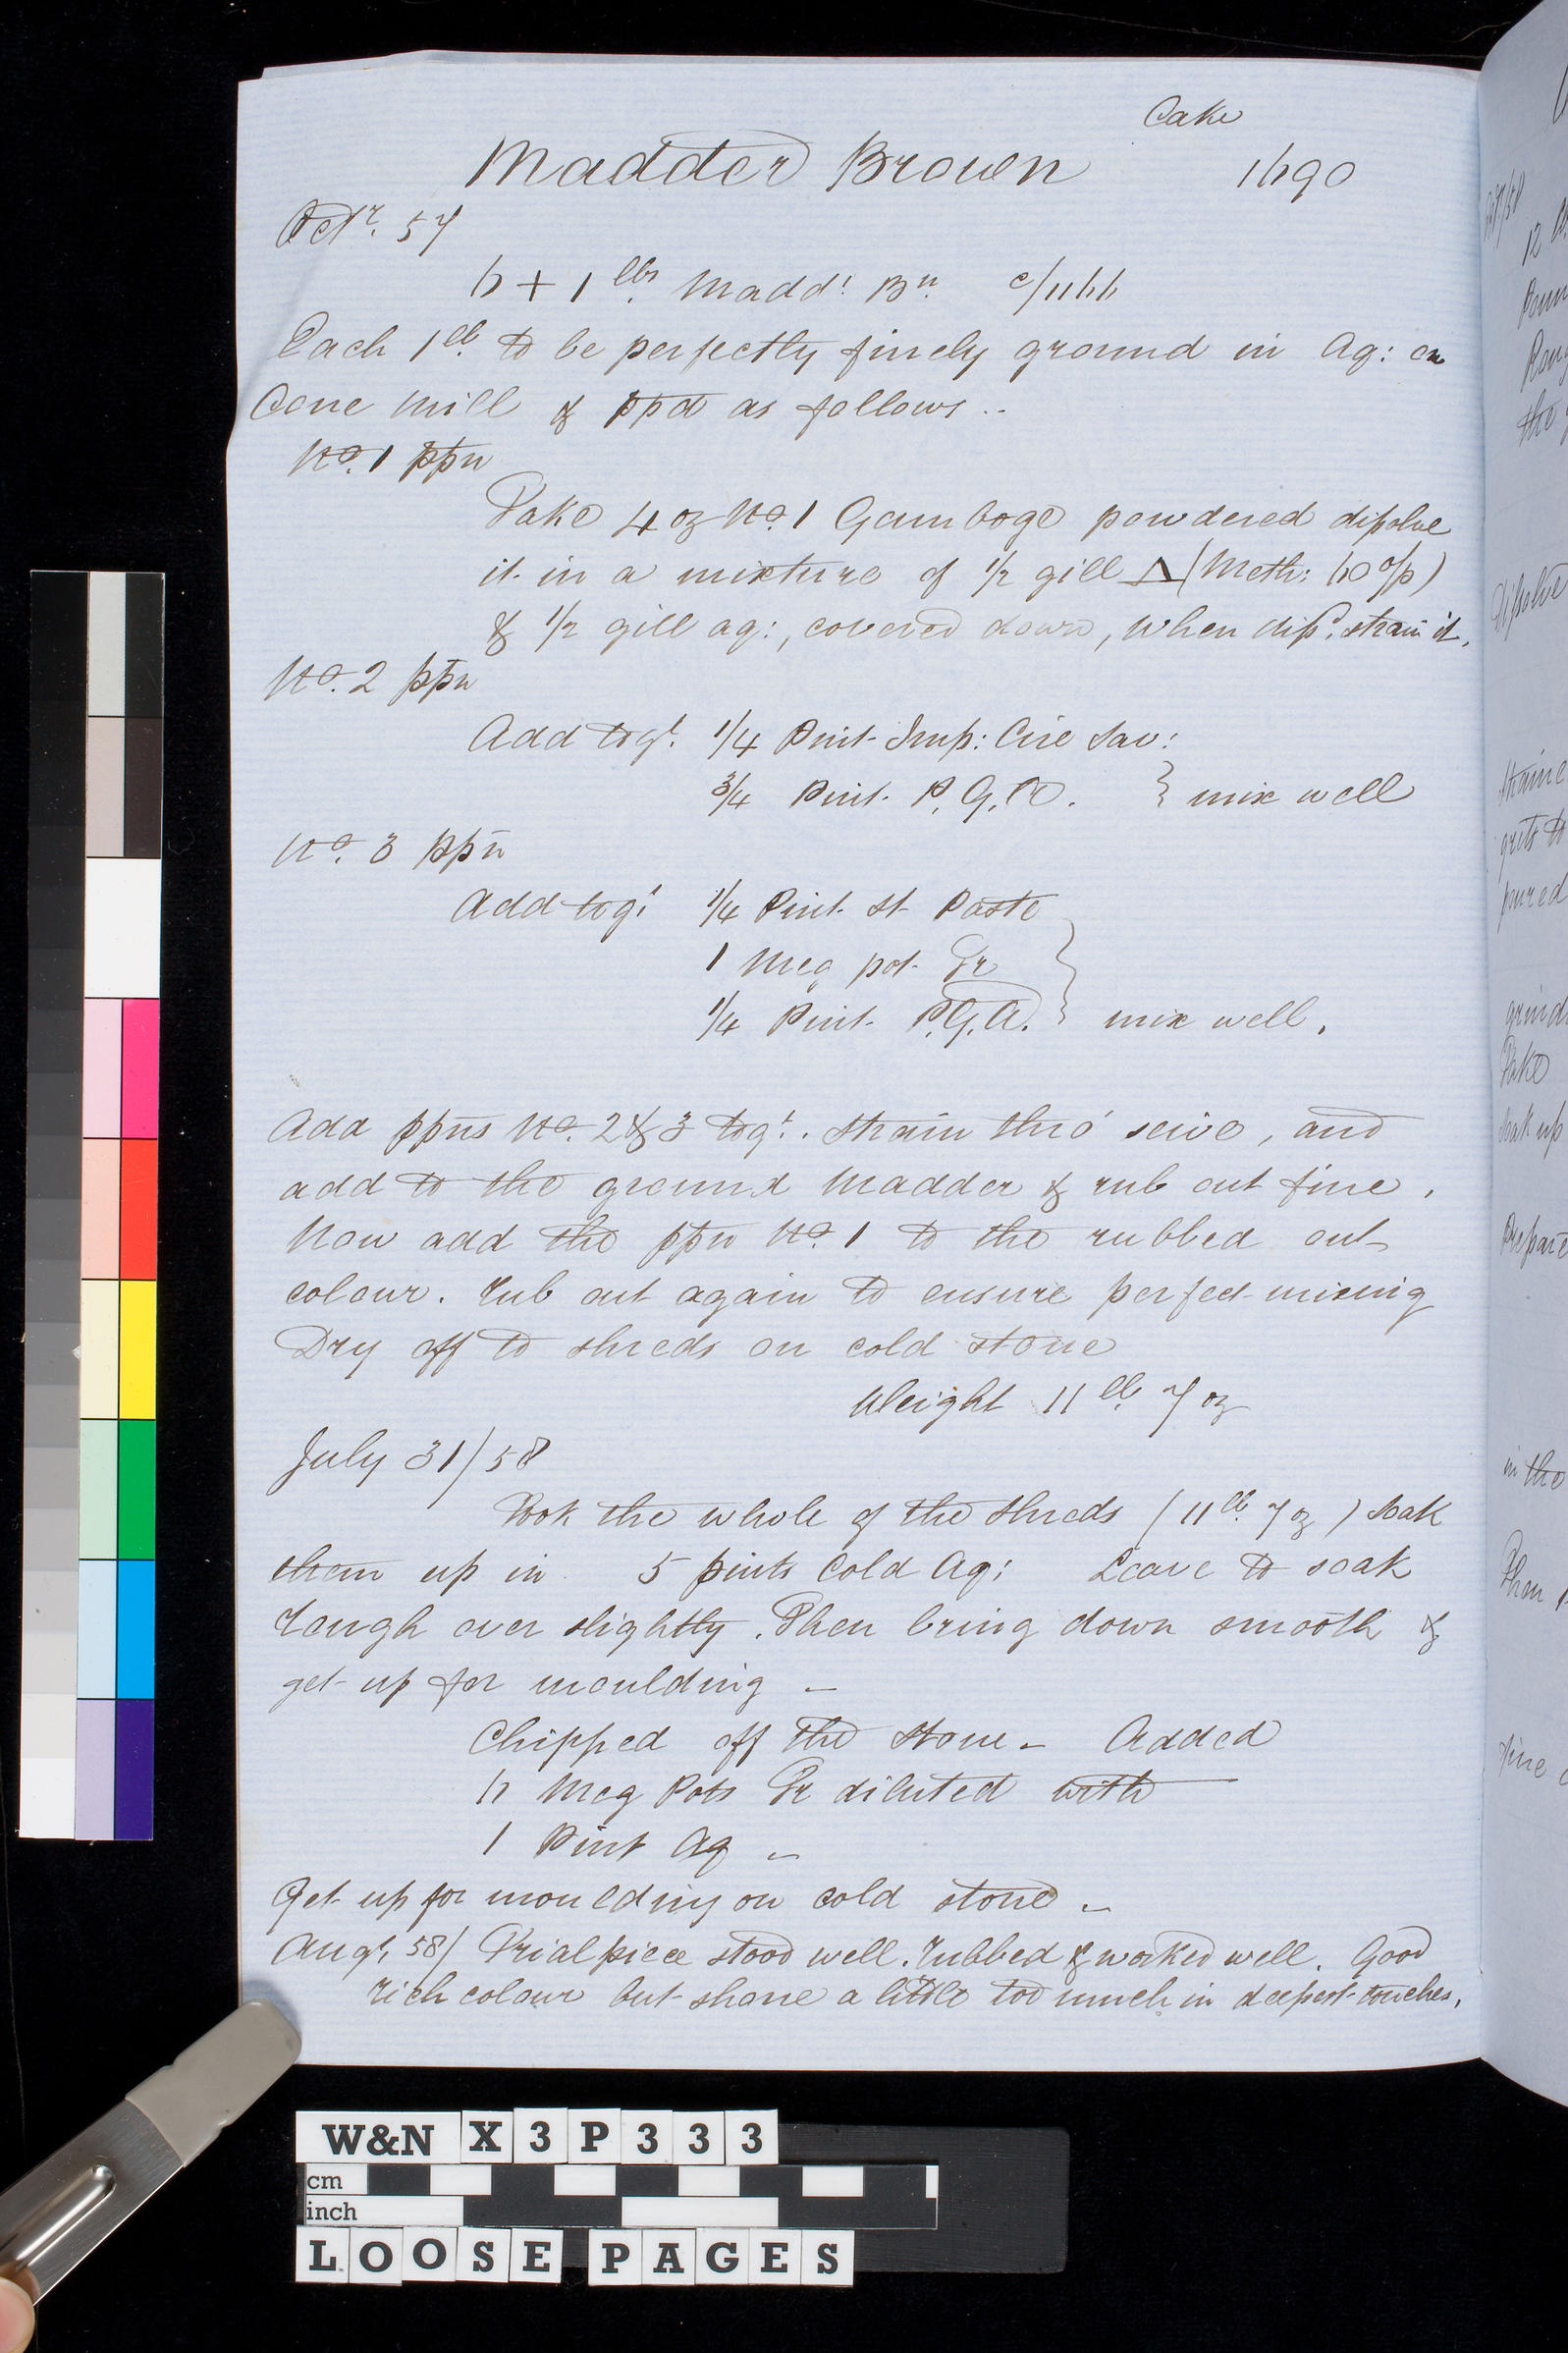 Cake
Madder Brown 1690
Octr. 57
6 + 1 lbs. Madd: Bn. c/1166
Each 1 lb. to be perfectly finely ground in Aq: on
Cone Mill & ppd as follows..
No. 1 ppn
Take 4 oz No. 1 Gamboge powdered dissolve
it in a mixture of 1/2 gill (Meth: 60 o/p)
& 1/2 gill aq:, covered down, when dissd. strain it.
No. 2 ppn
Add togt. 1/4 Pint Imp: Cire Sav:
3/4 Pint P.G.A. } mix well
No. 3 ppn
Add togt. 1/4 Pint St Paste
1 Meg pot Tr
1/4 Pint P.G.A. } mix well.
Add ppns No. 2 & 3 togt. strain thro' seive, and
add to the ground Madder & rub out fine.
Now add the ppn No. 1 to the rubbed out
colour. rub out again to ensure perfect mixing
Dry off to shreds on cold stone
Weight 11 lb. 7 oz
July 31/58
Took the whole of the shreds (11 lb. 7 oz) soak
them up in 5 pints Cold Aq: Leave to soak
Rough over slightly. Then bring down smooth &
get up for moulding –
Chipped off the stone – Added
6 Meg Pots Tr diluted with
1 Pint Aq –
Get up for moulding on cold stone –
Augt. 58/ Trial piece stood well. rubbed & worked well. Good
rich colour but shone a little too much in deepest touches.
12
the
Dissolve
grits to
grind
Take
Soak up
Prepare
in the
Then
fine
W&N X3P333
cm
inch
LOOSE PAGES